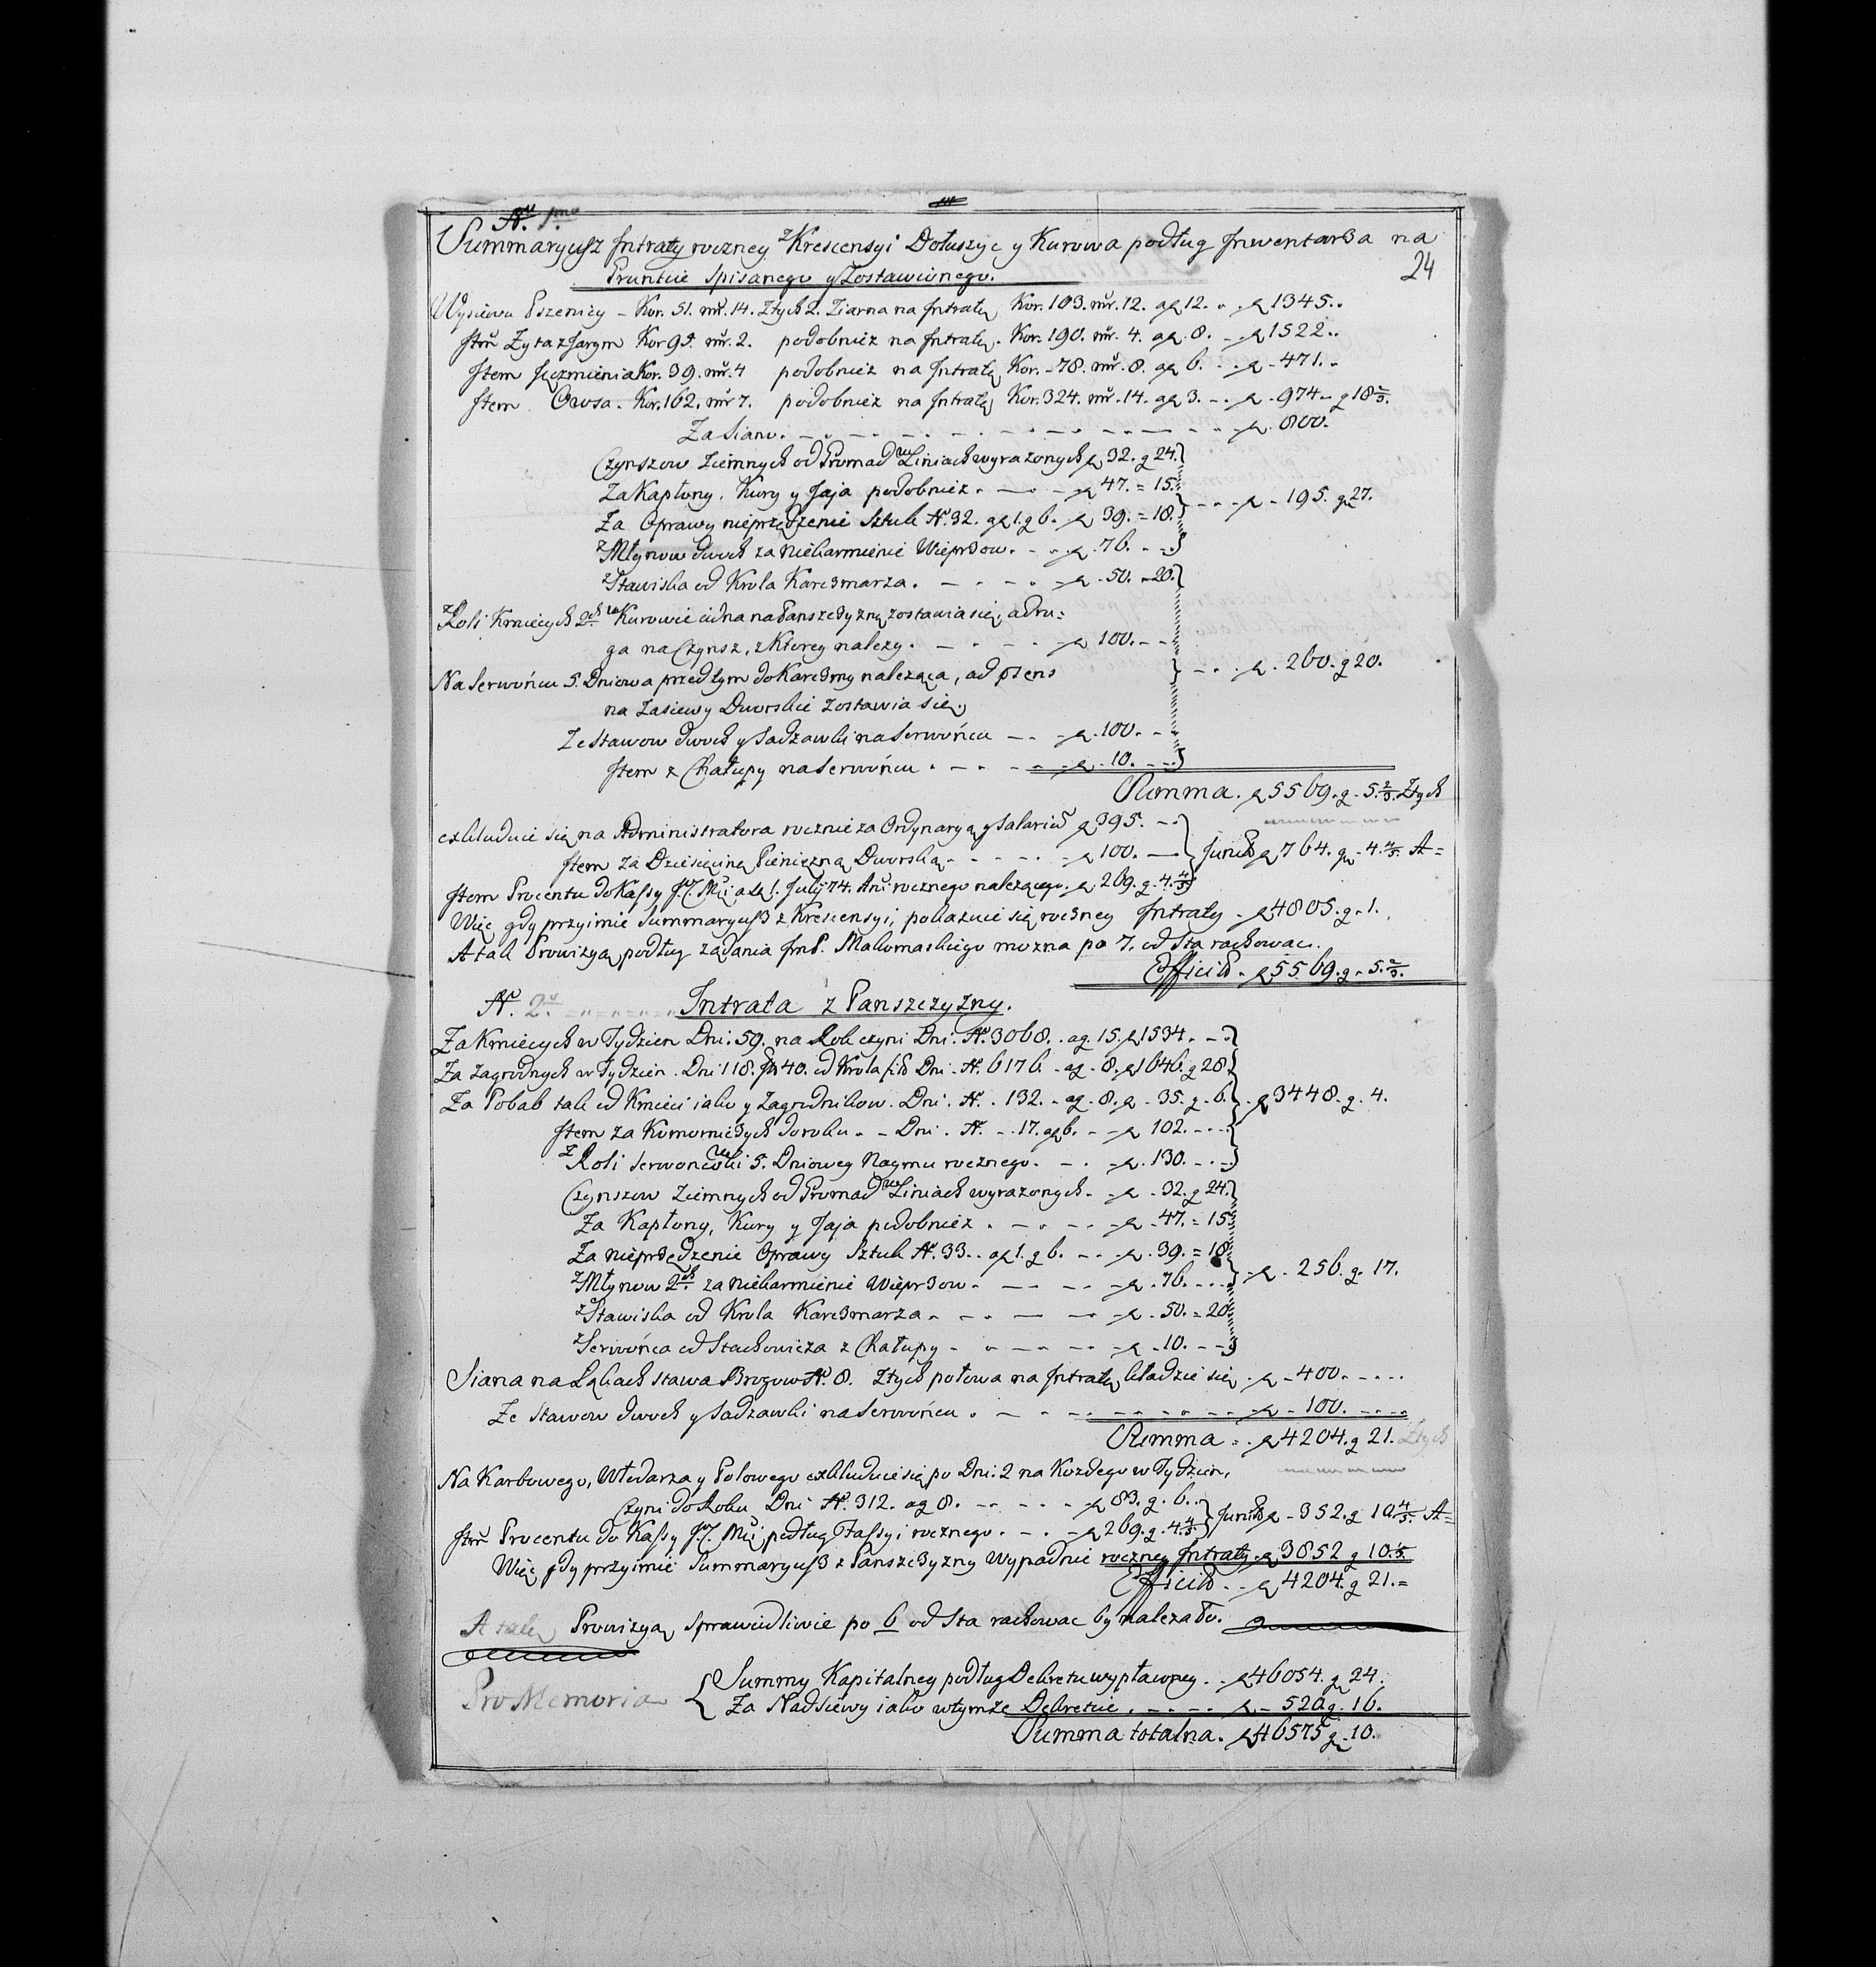 Nro 1mo
Summaryusz Intraty roczney z Krescensyi Dołuszyc y Kurowa podług Inwentarza na
24
Gruntuie spisanego y Zostawionego.
Wysiewu Pszenicy - Kor. 51. mr. 14. Ztych 2. Ziarna na Intratę Kor. 103. mr. 12. a 12. - 1345.
Item Zyta z Jarym Kor 95. mr. 2. podobniez na Intratę. Kor. 190. mr. 4. a 8. - 1522.
Item Jęczmienia Kor. 39. mr. 4 podobniez na Intratę Kor. - 78. mr. 8. a 6. - 471. -
Item Owsa. Kor. 162. mr 7. podobniez na Intratę Kor. 324. mr. 14. a 3. - 974 - g 18 2/5.
Za Siano. - 800.
Czynszow Ziemnych od Gromad w Liniach wyrazonych 32. g 24.
Za Kapłony, Kury y Jaja podobniez. - 47. = 15.
- 195. g 27.
Za Oprawy nieprzędzenie Sztuk Nro 32. a 1. g 6. 39. = 18.
z Młynow dwoch za niekarmienie Wieprzow. - 76. -
z Stawiska od Krola Karczmarza. - 50. = 20.
z Roli Kmiecych 2ch w Kurowie iedna na Panszczyznę zostawia się, a dru=
ga na Czynsz, z Ktorey nalezy. - 100. -
- 260. g 20.
Na Serwońcu 5. Dniowa przedtym do Karczmy naleząca, ad psens
na Zasiewy Dworskie zostawia się,
Ze Stawow dwoch y Sadzawki na Serwońcu - 100. -
Item z Chałupy na Serwońcu. - 10. -
Summa. 5569. g. 5. 2/5. Ztych
exkluduie się na Administratora rocznie za Ordynaryą y Salariũ 395. -
Item za Dziesięcinę Pienięzną Dworską. - 100. - Junctim 764. g - 4. 4/5. A=
Item Procentu do Kassy a die 1. July 74. Anni rocznego nalezącego. 269. g. 4. 4/5
Więc gdy przyimie Summaryusz z Krescensyi, pokazuie się roczney Intraty - 4805. g. 1.
A tak Prowizyą podług ządania ImP. Makomaskiego mozna po 7. od Sta rachowac.
Efficit. 5569. g. 5. 2/5.
Nro 2do Intrata z Panszczyzny.
Za Kmiecych w Tydzien Dni. 59. na Rok czyni Dni. Nro 3068. a g. 15. 1534. -
Za Zagrodnych w Tydzien. Dni 118. 40. od Krola Dni. Nro 6176. - a g - 8. 1646. g 28
Za Pobab tak od Kmieci iako y Zagrodnikow. Dni. Nro. 132. - a g. 8. - 35. g. 6. 3448. g. 4.
Item za Komorniczych do roku. - Dni. Nro. - 17. a 6. - 102. -
z Roli Serwonco[w]ski 5. Dniowey Naymu rocznego. - 130. -
Czynszow Ziemnych od Gromad w Liniach wyrazonych. - 32. g 24.
Za Kapłony, Kury y Jaja podobniez. - 47. = 15
Za nieprzędzenie Oprawy Sztuk Nro 33. a 1. g 6. - 39. = 18
z Młynow 2ch za niekarmienie Wieprzow. - 76. -
- 256. g. 17.
z Stawiska od Krola Karczmarza. - 50. = 20
z Serwońca od Stachowicza z Chałupy. - 10. -
Siana na Łąkach stawa Brogow Nro 8. Ztych połowa na Intratę kładzie się. - 400. -
Ze Stawow dwoch y Sadzawki na Serwońcu. - 100. -
Summa. 4204. g 21. Ztych
Na Karbowego, Włodarza y Polowego exkluduie się po Dni: 2 na Kozdego w Tydzien,
Czyni do Roku Dni Nro 312. a g 8. - 83. g. 6. Junctim - 352. g 10 4/5. A=
Item Procentu do Kassy podług Fassyi rocznego. - 269. g. 4. 4/5
Więc gdy przyimie Summaryusz z Panszczyzny Wypadnie roczney Intraty - 3852 g 10. 1/5.
Efficit. - 4204. g 21. =
A takę Prowizyą sprawiedliwie po 6 od Sta rachowac by nalezało.
Pro Memoria
Summy Kapitalney podług Dekretu wypławney. 46054. g 24.
Za Nadsiewy iako w tymze Dekrecie. - 520 g. 16.
Summa totalna. 46575 g. 10.